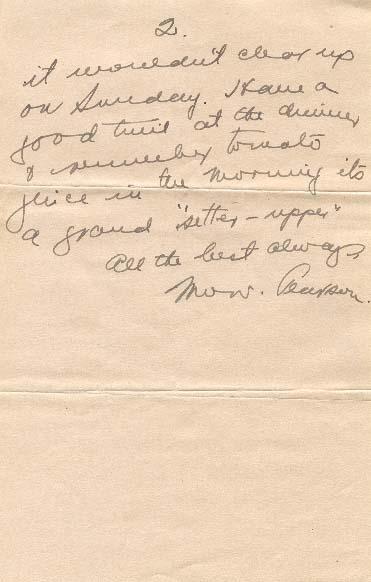 2.
it wouldn't clear up
on Sunday. Have a
good time at the dinner
& remember tomato
juice in the morning its
a grand "setter-upper"
All the best always
Pearson.